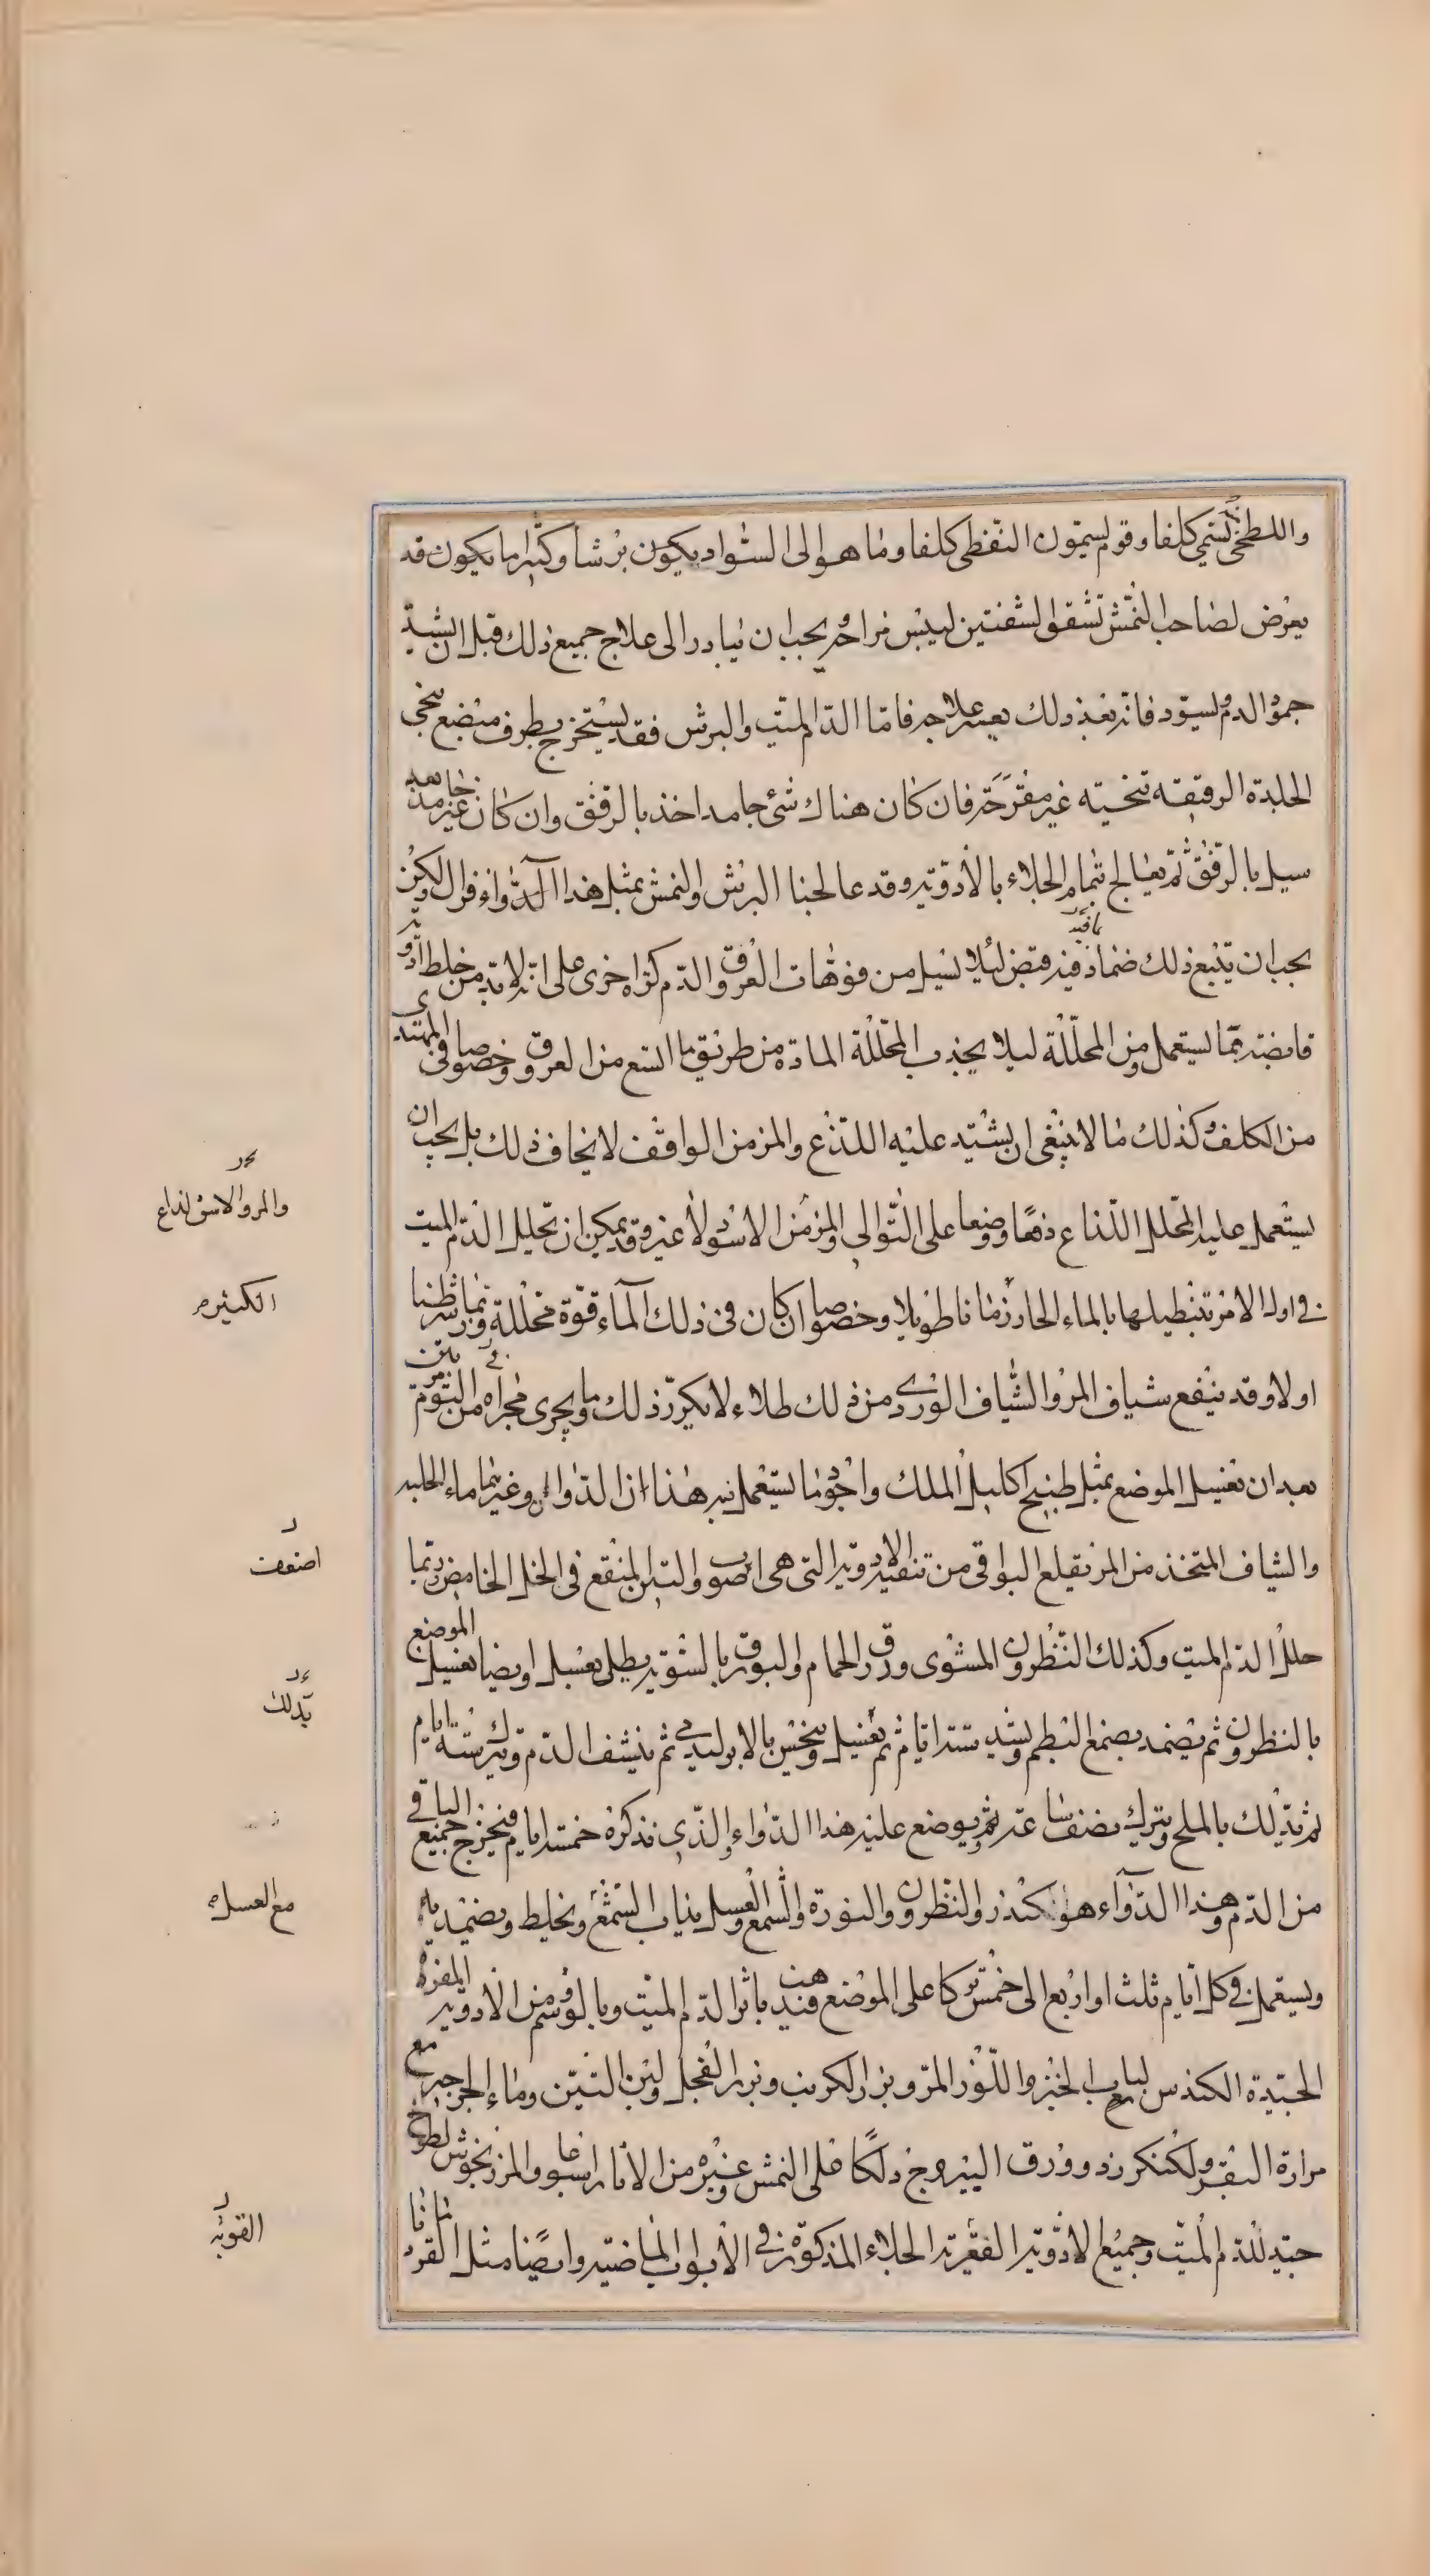 واللطخى يسمى كلفا وقوم يسمون النقطى كلفا وما هو الى السواد يكون برشا وكثيرا ما يكون قد
يعرض لصاحب النمش تشقق الشفتين ليبس مزاجه ويجب ان يبادر الى علاج جميع ذلك قبل ان يشتد
جمود الدم ويسود فانه بعد ذلك يعسر علاجه فاما الدم الميت والبرش فقد يستخرج بطرف مبضع ينحى
الجلدة الرقيقة تنحية غير مقرحة فان كان هناك شئ جامد اخذ بالرفق وان كان غير جامد
سيل بالرفق ثم يعالج تمام الجلاء بالادوية وقد عالجنا البرش والنمش بمثل هذا الدواء فزال ولكن
يجب ان يتبع ذلك ضماد فيه قبض لئلا يسيل من فوهات العروق الدم كرة اخرى على انه لا بد من خلط ادوية
قابضة مما يستعمل من المحللة ليلا يجذب المحللة المادة من طريق ما اتسع من العروق وخصوصا فى المبتدى
من الكلف وكذلك ما لا ينبغى ان يشتد عليه اللذع والمزمن الواقف لا يخاف ذلك بل يجب ان
يستعمل عليه المحلل اللذاع دهنا ووضعا على التوالى والمزمن الاسود ولا غيره وقد يمكن ان تحليل الدم الميت
فى اول الامر تنطيلها بالماء الحار زمانا طويلا وخصوصا ان كان فى ذلك الماء قوة محللة وربما شرطنا
اولا وقد ينفع شياف المر والشياف الوردى من ذلك طلاء لا يكرر ذلك وما يجرى مجراه من اليوم مرتين
بعد ان يغسل الموضع بمثل طبيخ اكليل الملك واجود ما يستعمل به هذا ان الدواان وغيرهما ماء الحلبه
والشياف المتخذ من المر يقلع البواقى من تنفيه الادوية التى هى اصوب والتين المنقع فى الخل الحامض ربما
حلل الدم الميت وكذلك النظرون المشوى وزرق الحمام والبورق بالسوية يطلى بعسل او ايضا يغسل الموضع
بالنظرون ثم يضمد بصمغ البطم ويشد ستة ايام ثم يغسل وينخس بالابر ليدمى ثم ينشف الدم ويترك ستة ايام
ثم يدلك بالملح ويترك نصف ساعة ثم يوضع عليه هذا الدواء الذى نذكره خمسة ايام فيخرج جميع الباقى
من الدم وهذا الدواء هو الكندر والنظرون والنورة والشمع والعسل يذاب الشمع ويخلط ويضمد به
ويستعمل فى كل ايام ثلث او اربع الى خمس تركا على الموضع فيذهب باثر الدم الميت وبالوشم ومن الادوية المفردة
الجيدة الكندس لباب الخبز واللوز المر وبزر الكرنب وبزر الفجل ولبن التين وماء الجرجير مع
مرارة البقر ولكنكرزد وورق اليبروج دلكا على النمش وغيره من الاثار اسبوعا والمرزنجوش لطوخ
جيد للدم الميت وجميع الادوية الفقرية الجلاء المذكورة فى الابواب الماضية وايضا مثل القردمانا
يافيه
والمر والاشق لذاع
الكثيره
اضعف
يدلك
مع العسل
القويه